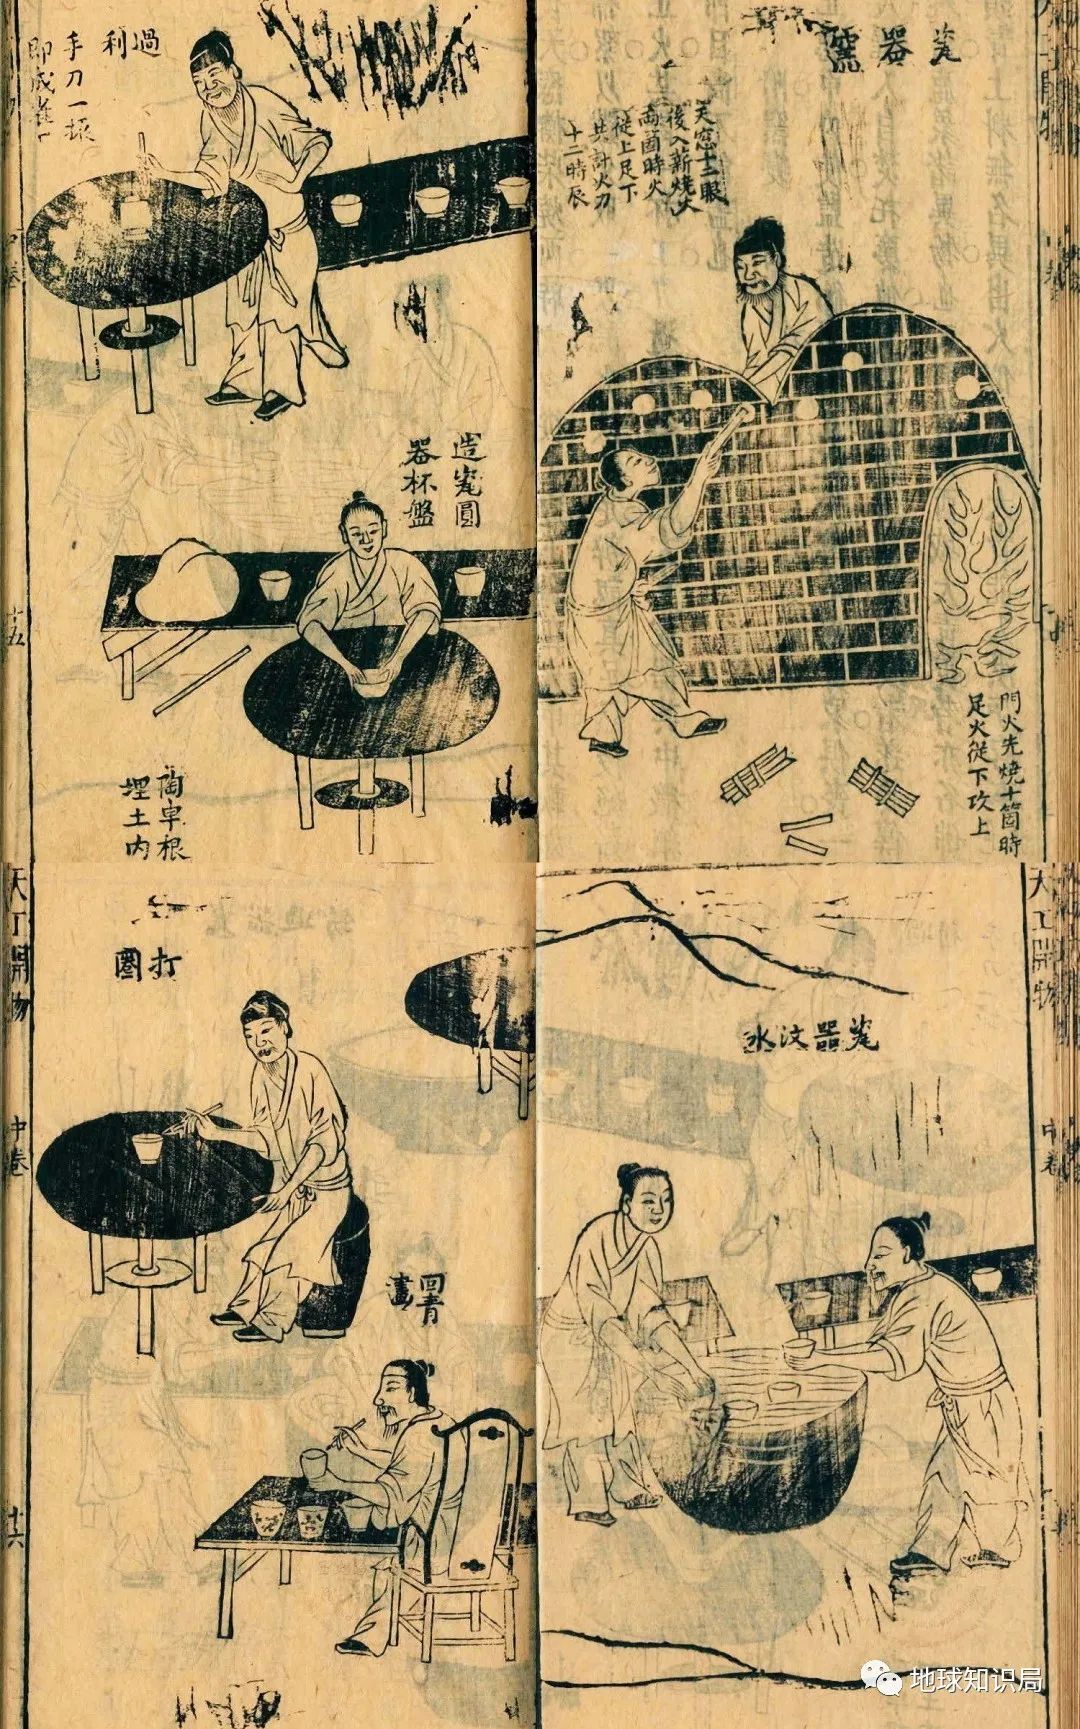 過
利
手刀一振
即成雀
中卷
造瓷圓
器杯盤
十五
陶車根
埋土內
瓷器窰
天窓十二眼
後入薪燒火
兩箇時火
從上足下
共計火刀
十二時辰
門火先燒十箇時
足火從下攻上
天工開物
中卷
十六
打圈
回青
畫
天工開物
中卷
瓷器汶水
地球知识局